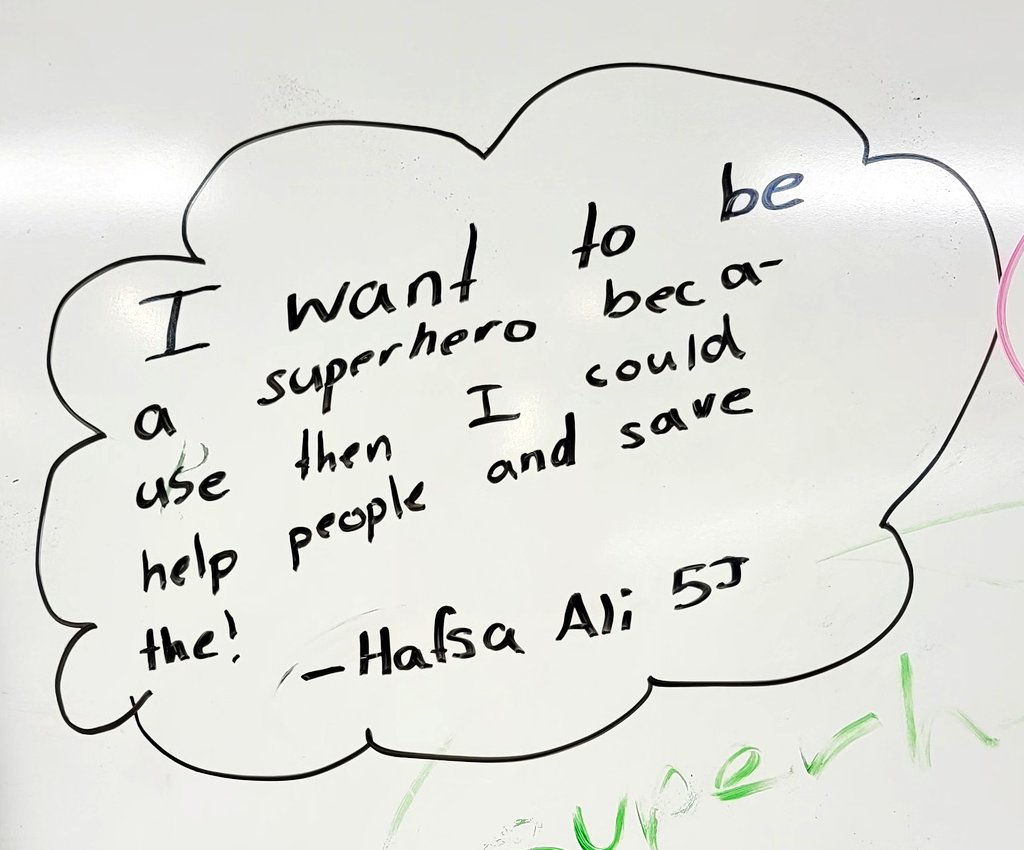 I want to be
a superhero beca-
use then I could
help people and save
the! -Hafsa Ali 5J
superh